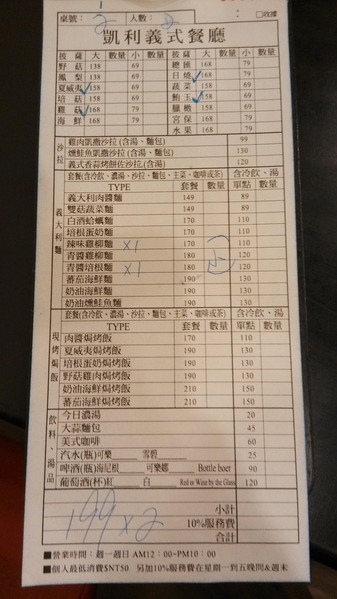 桌號: 1/2 人數: 2 □收據
凱利義式餐廳
披薩 大 數量 小 數量 披薩 大 數量 小 數量
野菇 138 69 燻雞 168 79
鳳梨 138 69 日燒 168 79
夏威夷 158 69 蔬菜 158 69
培菇 158 69 鮪玉 158 69
雞菇 168 79 臘橄 158 69
海鮮 168 79 宮保 168 79
水果 168 79
沙拉
雞肉凱撒沙拉(含湯、麵包) 99
燻鮭魚凱撒沙拉(含湯、麵包) 130
義式香蒜烤餅佐沙拉(含湯) 120
義大利麵
套餐(含冷飲、濃湯、沙拉、麵包、主菜、咖啡或茶) 含冷飲、湯
TYPE 套餐 數量 單點 數量
義大利肉醬麵 149 89
雙菇蔬菜麵 149 89
白酒蛤蠣麵 170 110
培根蛋奶麵 170 110
辣味雞柳麵 X1 170 110
青醬雞柳麵 180 120
青醬培根麵 X1 180 120
蕃茄海鮮麵 190 130
奶油海鮮麵 190 130
奶油燻鮭魚麵 190 130
現烤焗飯
套餐(含冷飲、濃湯、沙拉、麵包、主菜、咖啡或茶) 含冷飲、湯
TYPE 套餐 數量 單點 數量
肉醬焗烤飯 170 110
夏威夷焗烤飯 190 130
培根蛋奶焗烤飯 190 130
野菇雞肉焗烤飯 190 130
奶油海鮮焗烤飯 210 150
蕃茄海鮮焗烤飯 210 150
飲料、湯品
今日濃湯 20
大蒜麵包 45
美式咖啡 60
汽水(瓶)可樂 雪碧 25
啤酒(瓶)海尼根 可樂娜 Bottle boer 90
葡萄酒(杯)紅 白 Red or Wine by the Glass 120
199 x 2
小計
10%服務費
合計
■營業時間：週一週日 AM12：00~PM10：00
■個人最低消費$NT50 另加10%服務費在星期一到五晚間&週末